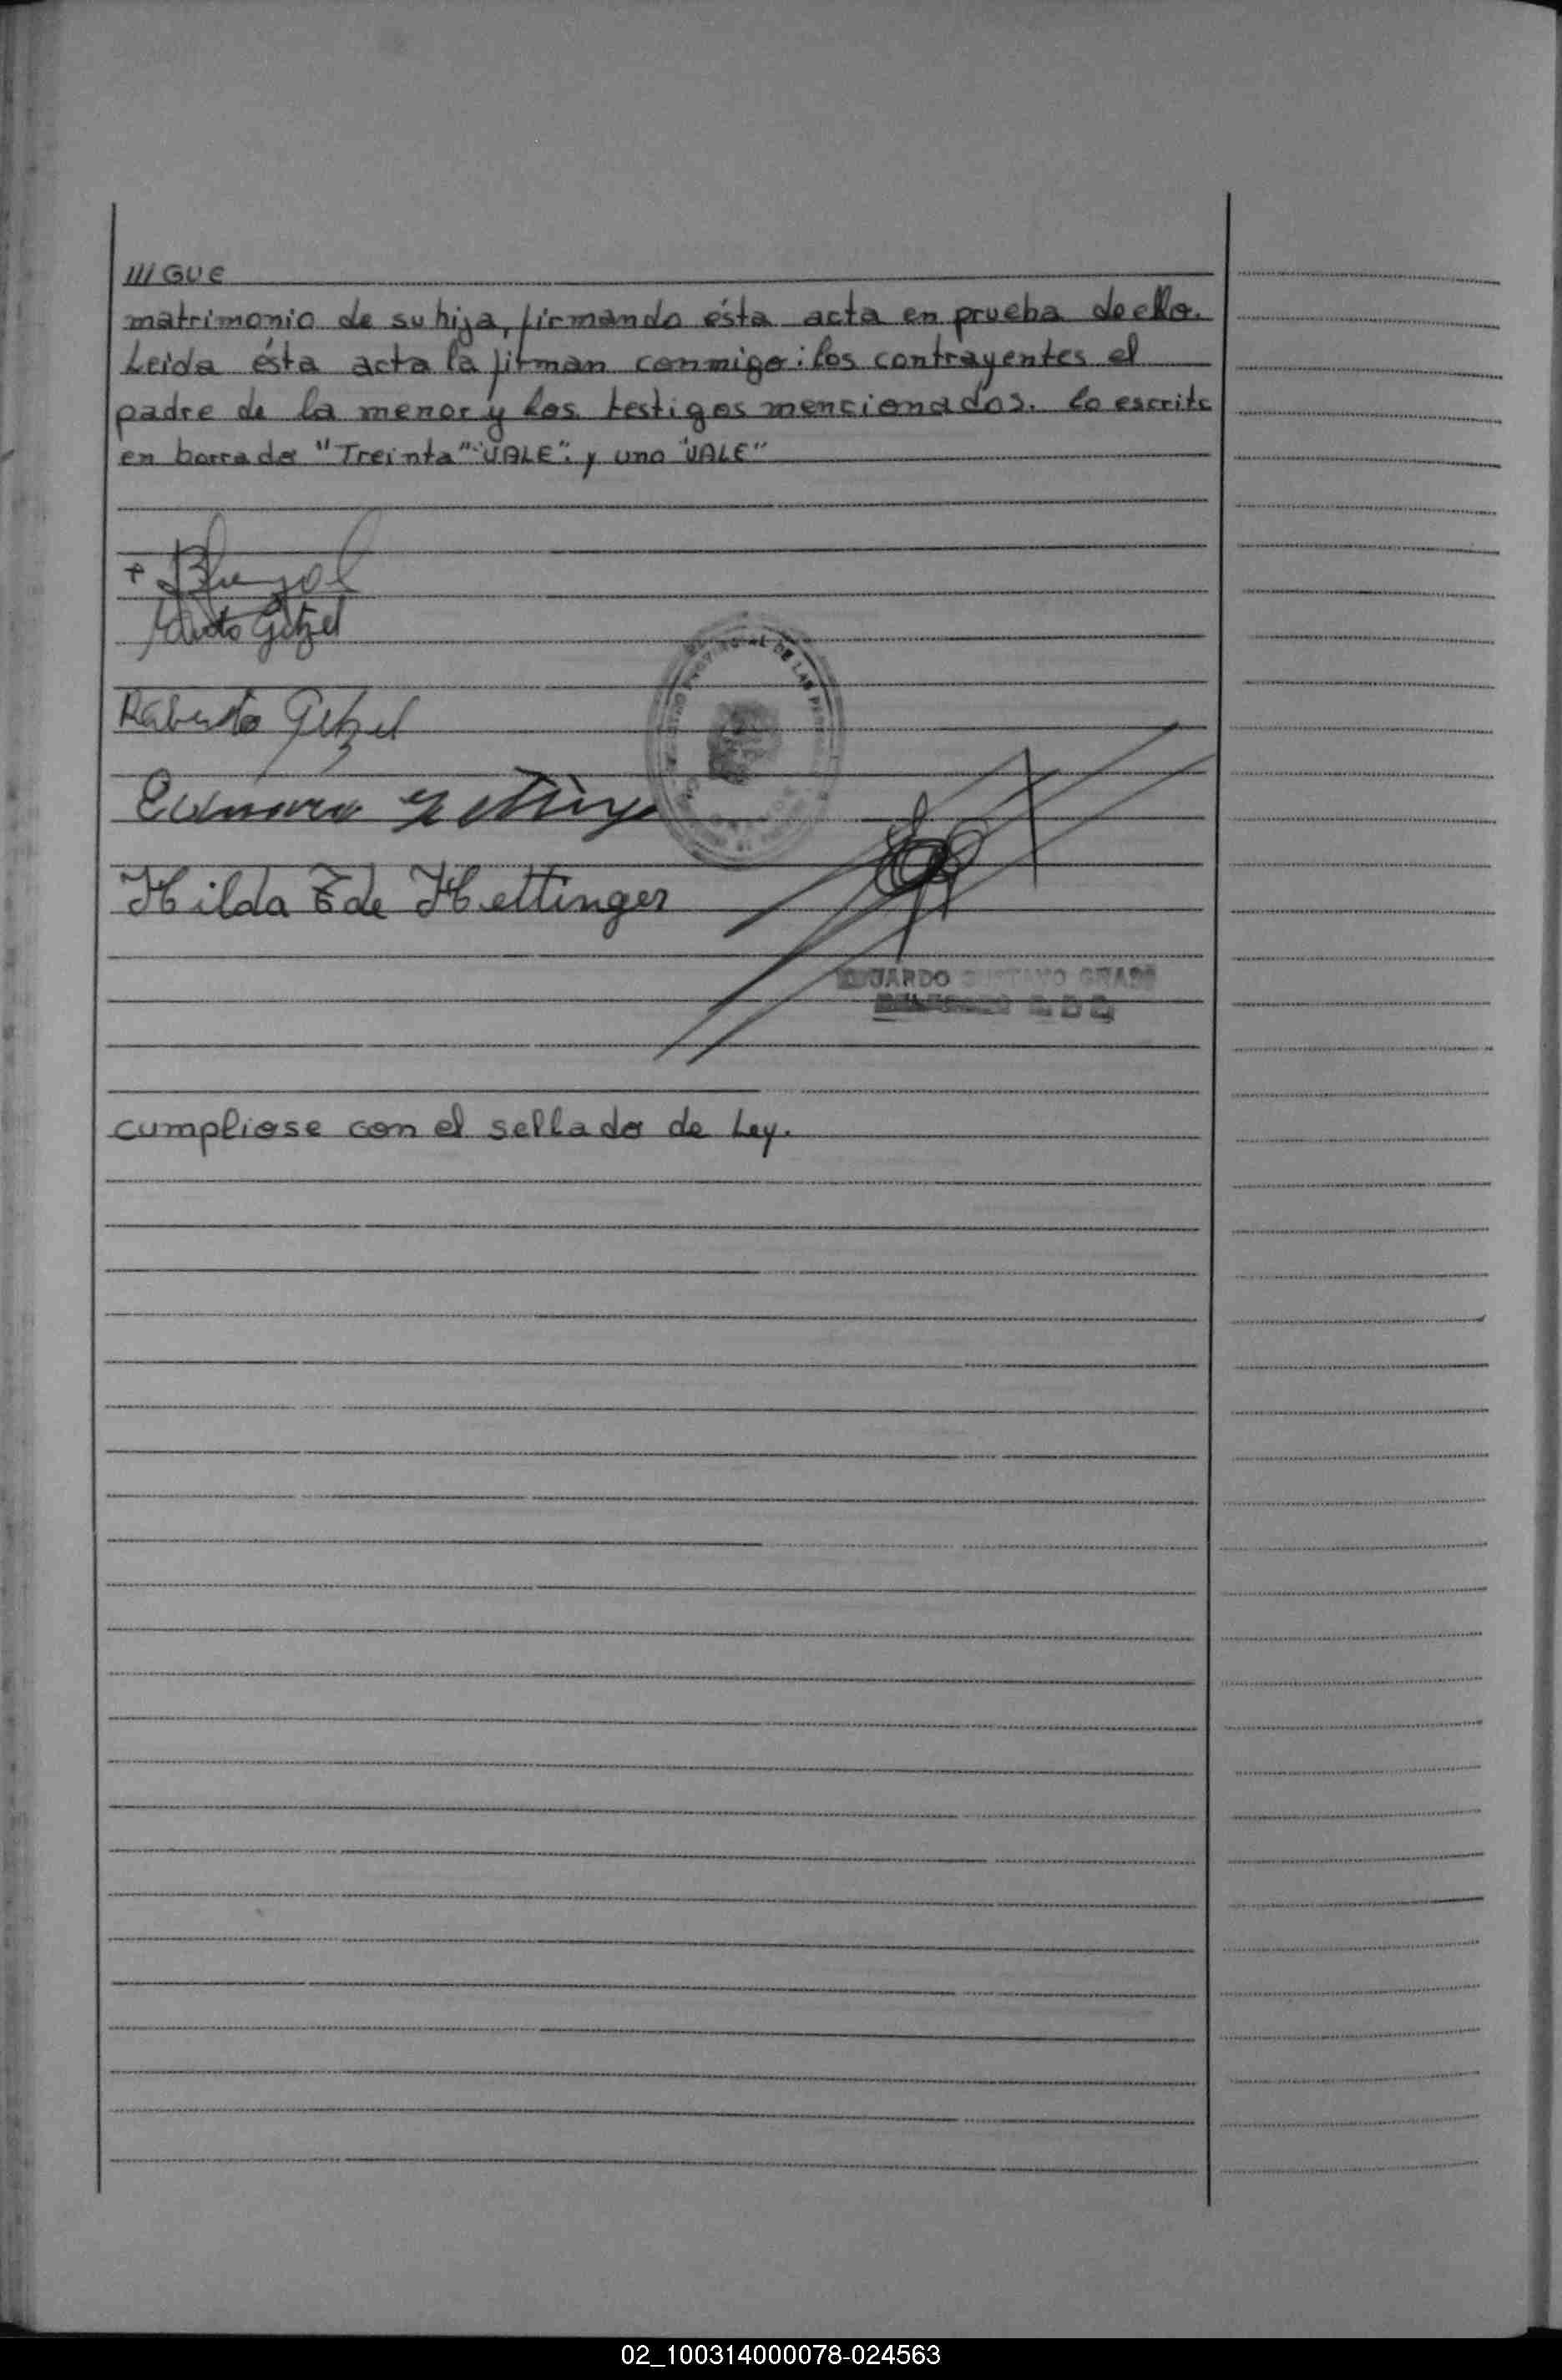 ///GUE
matrimonio de su hija, firmando ésta acta en prueba de ello.
Leida ésta acta la firman conmigo: los contrayentes el
padre de la menor y los testigos mencionados. Lo escrito
en borrado "Treinta" "VALE". y uno "VALE"
Getzel
Roberto Getzel
Hilda de Hettinger
PROVINCIAL DE LAS
GUSTAVO
cumpliose con el sellado de Ley.
02_100314000078-024563